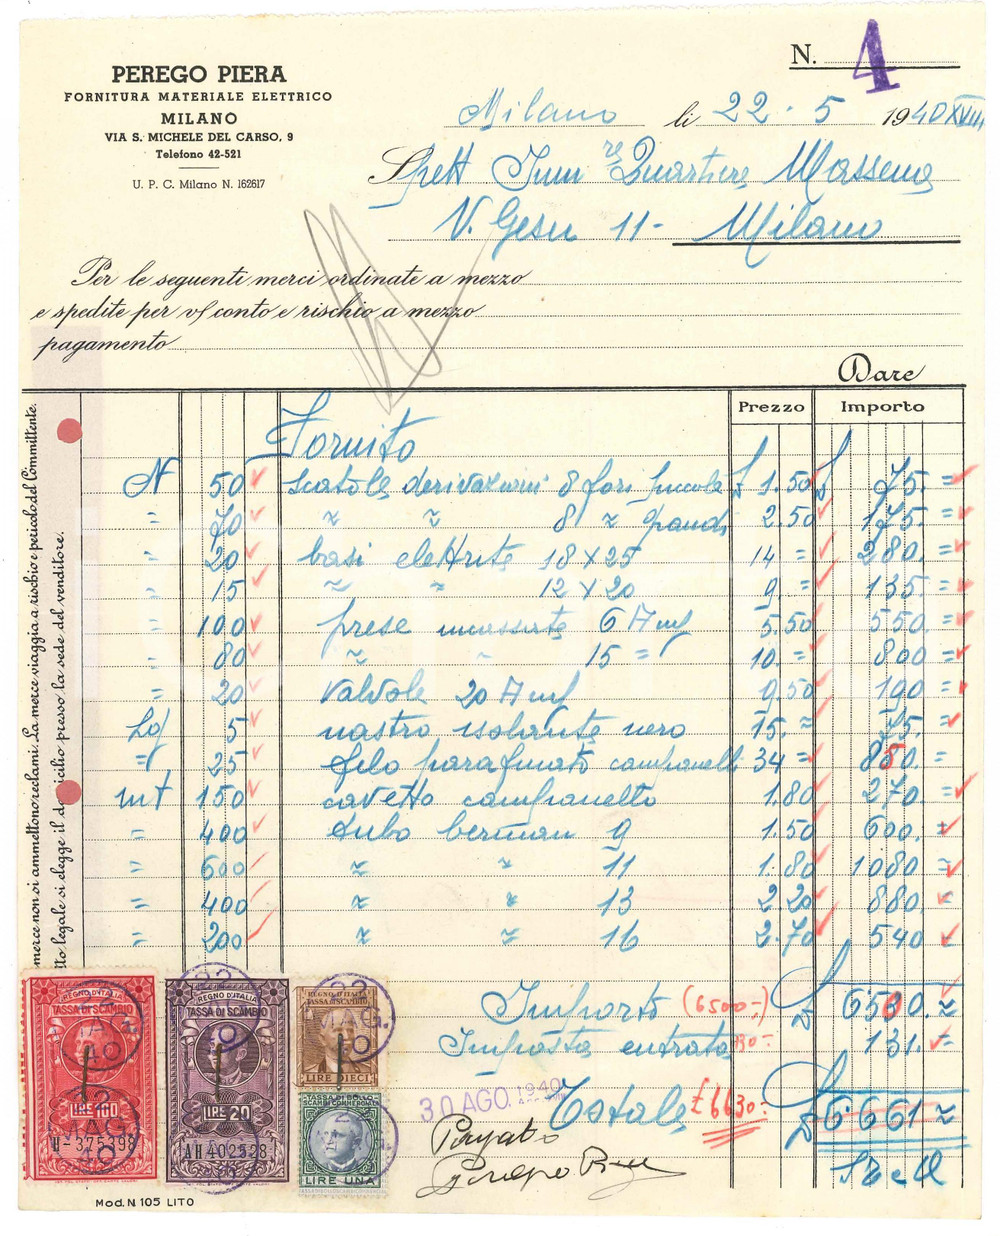 PEREGO PIERA
FORNITURA MATERIALE ELETTRICO
MILANO
VIA S. MICHELE DEL CARSO, 9
Telefono 42-521
U. P. C. Milano N. 162617
N. 4
Milano li 22 - 5 1940 XVIII
Spett Imm re Quartiere Massena
V. Gesu 11 - Milano
Per le seguenti merci ordinate a mezzo
e spedite per v/ conto e rischio a mezzo
pagamento
Dare
Prezzo Importo
merce non si ammettono reclami. La merce viaggia a rischio e pericolo del Committente.
tto legale si elegge il domicilio presso la sede del venditore.
Fornito
N 50 scatole derivazioni 8 fori piccole £ 1.50 £ 75. =
" 70 " " 8 " grandi 2.50 175 =
" 20 basi elettrite 18 X 25 14 = 280. =
" 15 " " 12 X 20 9 = 135 =
" 100 prese incassate 6 A mf 5.50 550. =
" 80 " " 15 = 10. = 800 =
" 20 Valvole 20 A mf 9.50 190 =
Kg 5 nastro isolante nero 15. = 75. =
" 25 filo parafinato campanelli 34 = 850. =
mt 150 cavetto campanello 1.80 270. =
" 400 tubo berman 9 1.50 600. =
" 600 " " 11 1.80 1080 =
" 400 " " 13 2.20 880. =
" 200 " " 16 2.70 540 =
Importo (6500,-) £ 6530. =
Imposta entrata 130 - 131. =
Totale £ 6630 - £ 6.661 =
30 AGO. 1940
Pagato
Perego Piera
REGNO D'ITALIA
TASSA DI SCAMBIO
LIRE 100
N- 375398
REGNO D'ITALIA
TASSA DI SCAMBIO
LIRE 20
AH 402528
REGNO D'ITALIA
TASSA DI SCAMBIO
LIRE DIECI
TASSA DI BOLLO
SCAMBI COMMERCIALI
LIRE UNA
22
MAG.
40
Mod. N. 105 LITO